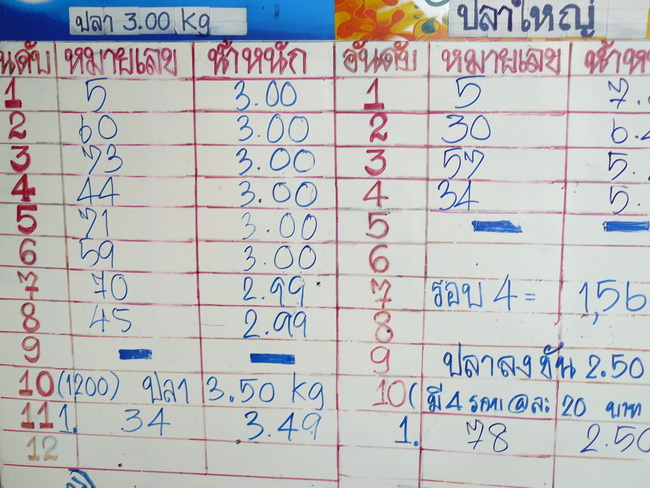 ปลา 3.00 kg
ปลาใหญ่
หมายเลข น้ำหนัก
1 5 3.00
2 60 3.00
3 73 3.00
4 44 3.00
5 71 3.00
6 59 3.00
7 70 2.99
8 45 2.99
9
10 (1200) ปลา 3.50 kg
11 1. 34 3.49
12
อันดับ หมายเลข
1 5 7.
2 30 6.
3 57 5.
4 34 5.
5
6
7 รอบ 4 = 1,56
8
9 ปลาลง 2.50
10( มี 4 @ละ 20 บาท
1. 78 2.50